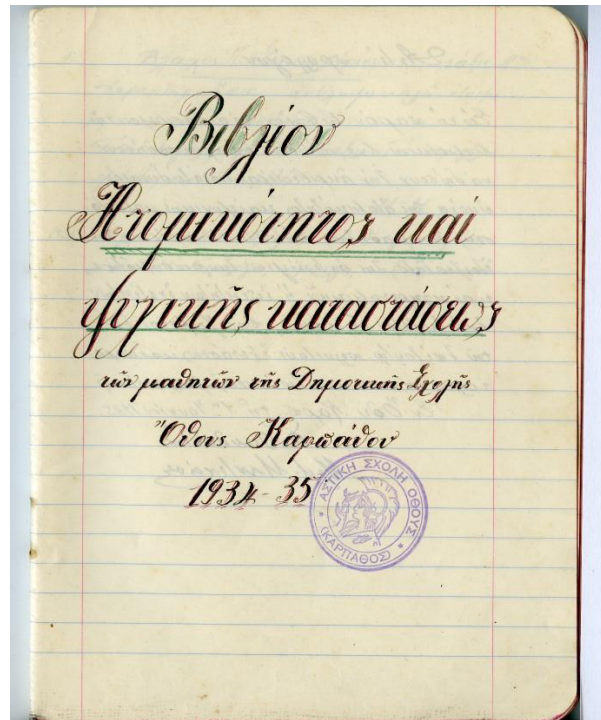 Βιβλίον
Ατομικότητος καί
ψυχικῆς καταστάσεως
τῶν μαθητῶν τῆς Δημοτικῆς Σχολῆς
Ὄθους Καρπάθου
1934-35
ΑΣΤΙΚΗ ΣΧΟΛΗ ΟΘΟΥΣ
(ΚΑΡΠΑΘΟΣ)